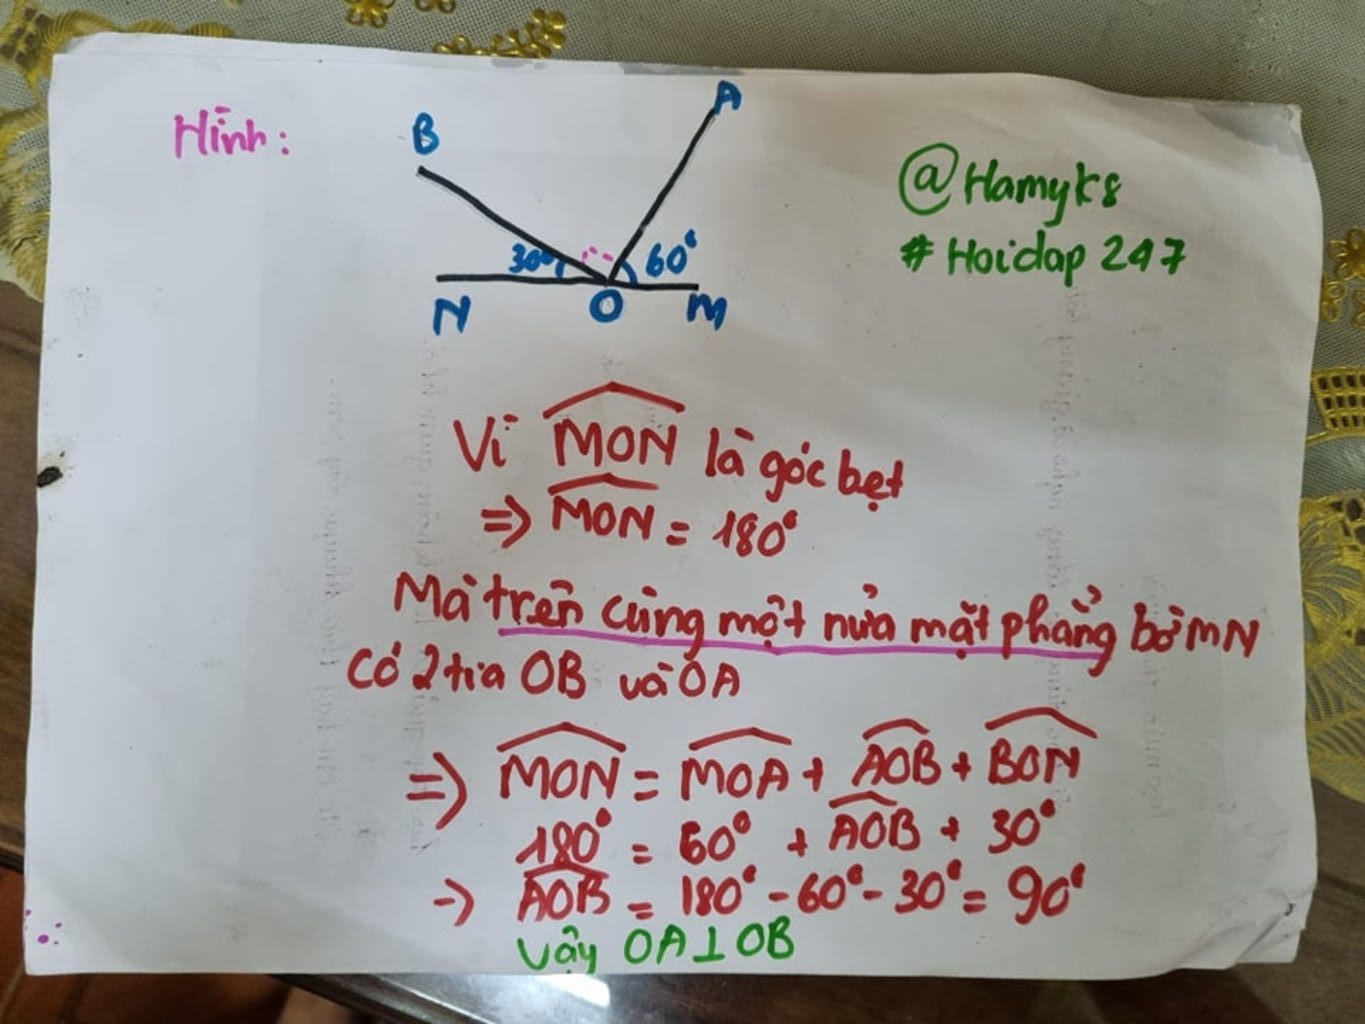 Hình:
B
A
30°
60°
N
O
M
@Hamyk8
# Hoidap 247
Vì MON là góc bẹt
=> MON = 180°
Mà trên cùng một nửa mặt phẳng bờ MN
Có 2 tia OB và OA
=> MON = MOA + AOB + BON
180° = 60° + AOB + 30°
-> AOB = 180° - 60° - 30° = 90°
Vậy OA⊥OB